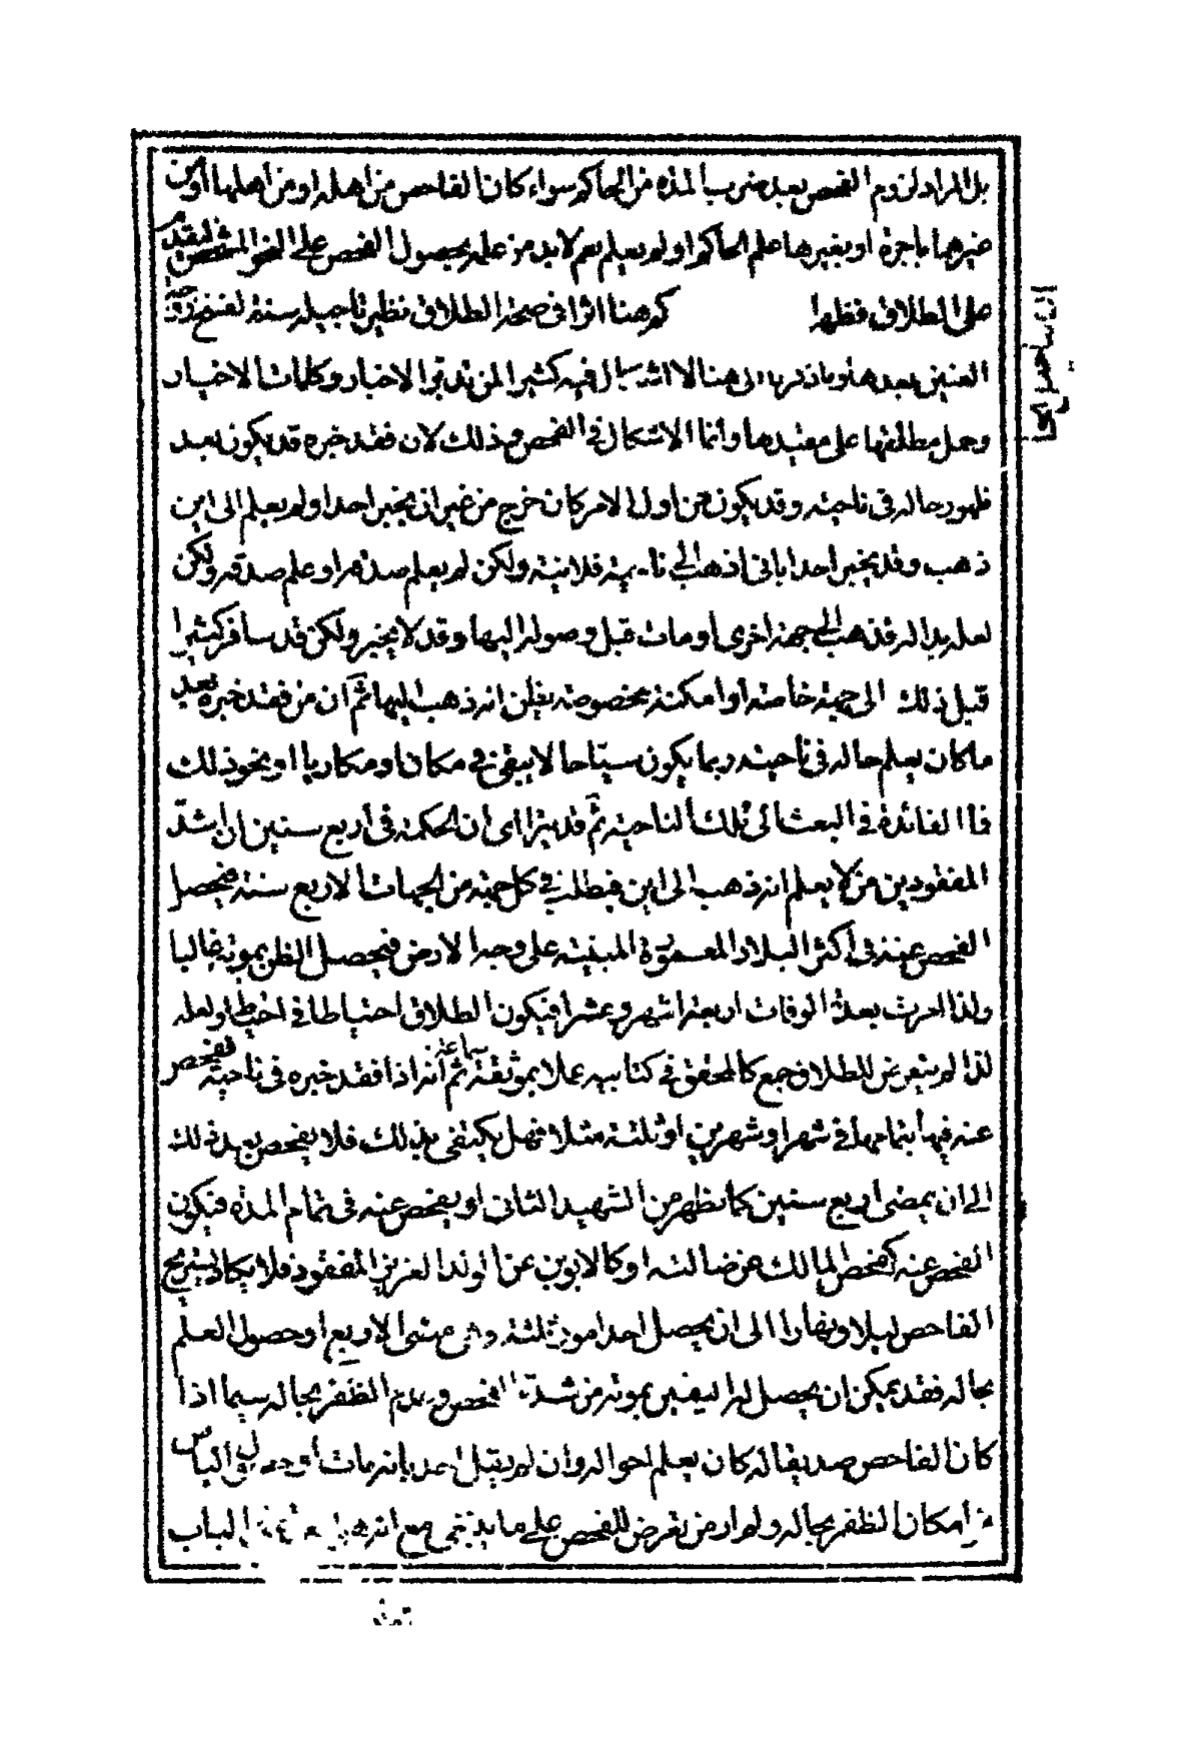 بل المراد لزوم الفحص بعد ضرب المدة من الحاكم سواء كان الفاحص من اهله او من اهلها او من
غيرهما باجرة او بغيرها علم الحاكم او لم يعلم نعم لابد من علمه بحصول الفحص على النحو المشخص
على الطلاق فظهر ا كم هنا اثرا في صحة الطلاق نظير تاجيله سنة لفسخ زوجة
العنين بعدها وما ذكرنا الى هنا لا اشكال فيه كثيرا لمن تدبر الاخبار وكلمات الاخيار
وحمل مطلقها على مقيدها وانما الاشكال في الفحص وذلك لان فقد خبره قد يكون بعد
ظهور حاله في ناحية وقد يكون من اول الامر كان خرج من غير ان يخبر احدا ولم يعلم الى اين
ذهب وقد يخبر احدا باني اذهب الى ناحية فلانية ولكن لم يعلم صدقه او علم صدقه ولكن
لعله بدا له فذهب الى جهة اخرى او مات قبل وصوله اليها وقد لا يخبر ولكن قد سافر كثيرا
قبل ذلك الى جهة خاصة او امكنة مخصوصة يظن انه ذهب اليها ثم ان من فقد خبره بعد
ما كان يعلم حاله في ناحية ربما يكون سياحا لا يبقى في مكان او مكاريا او نحو ذلك
فما الفائدة في البعث الى تلك الناحية ثم قد يتراءى ان الحكمة في اربع سنين ان اشد
المفقودين من لا يعلم انه ذهب الى اين فيطلب في كل جهة من الجهات الاربع سنة فيحصل
الفحص عنه في اكثر البلاد المعمورة المبنية على وجه الارض فيحصل الظن بموته غالبا
ولذا امرت بعدة الوفات اربعة اشهر وعشرا فيكون الطلاق احتياطا في احتياط ولعله
لذا لم يتعرض للطلاق جمع كالمحقق في كتابيه عملا بموثقة سماعة ثم انه اذا فقد خبره في ناحية ففحص
عنه فيها بتمامها في شهر او شهرين او ثلثة مثلا فهل يكتفى بذلك فلا يفحص بعد ذلك
الى ان يمضى اربع سنين كما يظهر من الشهيد الثاني او يفحص عنه في تمام المدة فيكون
الفحص عنه كفحص المالك عن ضالته او كالابوين عن الولد العزيز المفقود فلا يكاد يستريح
الفاحص ليلا ونهارا الى ان يحصل احد امور ثلثة وهي مضى الاربع او حصول العلم
بحاله فقد يمكن ان يحصل له اليقين بموته من شدة الفحص وعدم الظفر بحاله سيما اذا
كان الفاحص صديقا له كان يعلم احواله وان لم يقل احد بانه مات الياس
من امكان الظفر بحاله ولم ار من تعرض للفحص على ما ينبغي مع انه الباب